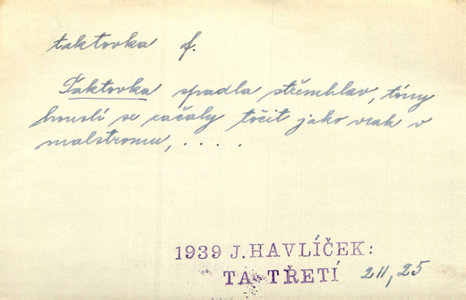 taktovka f.
Taktovka spadla střemhlav, tóny
houslí se začaly točit jako vrak v
malstromu, . . . . .
1939 J. HAVLÍČEK:
TA TŘETÍ 211, 25